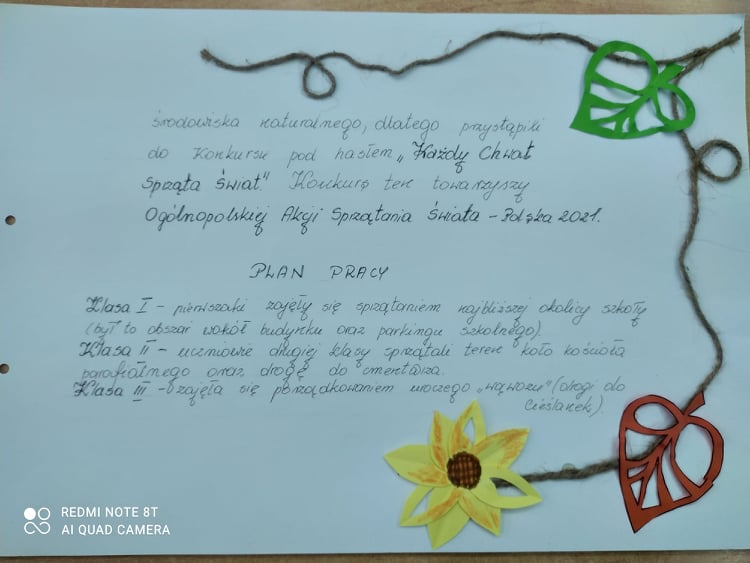 środowiska naturalnego, dlatego przystąpili
do Konkursu pod hasłem „Każdy Chwat
Sprząta Świat." Konkurs ten towarzyszy
Ogólnopolskiej Akcji Sprzątania Świata – Polska 2021.
PLAN PRACY
Klasa I – pierwszaki zajęły się sprzątaniem najbliższej okolicy szkoły
(był to obszar wokół budynku oraz parkingu szkolnego).
Klasa II – uczniowie drugiej klasy sprzątali teren koło kościoła
parafialnego oraz drogę do cmentarza.
Klasa III – zajęła się porządkowaniem uroczego „wąwozu" (drogi do
Cieślanek).
REDMI NOTE 8T
AI QUAD CAMERA